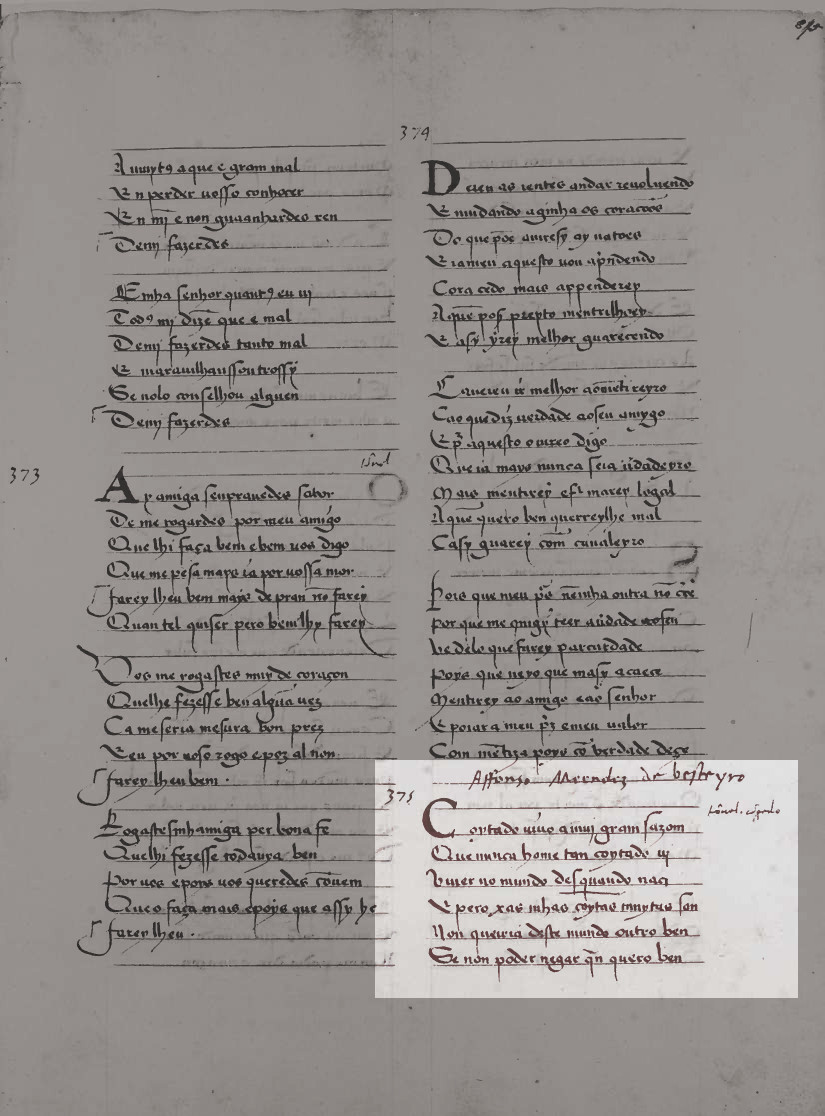 374
A muytꝯ aque e gram mal
En perder uosso conhocer
En mj̃ e non guaanhardes ren
Demj fazerdes
E mha senhor quantꝯ eu uj
Todꝯ mj dizẽ que e mal
Demj fazerdes tanto mal
E marauilhaussoutrossy
Se uolo conselhou alguen
Demj fazerdes
373
Ay amiga senpraue des sabor
De me rogardes por meu amigo
Quelhi faça bem e bem uos digo
Que me pesa mays ia por uossa mor
farey lheu bem mays de pran nõ farey
Quan tel quiser pero bemlhy farey
Vos me rogastes muy de coraçon
Quelhe fezesse ben algũa uez
Ca meseria mesura bon prez
E eu por uoso rogo e poz al non
farey lheu bem.
Rogastesmhamiga per bona fe
Quelhi fezesse todauya ben
Por uos e poys uos queredes cõuem
Queo faça mais epoys que assy he
farey lheu.
Dizen as ientes andar reuoluendo
E mudando aginha os corações
Do que põe antresy ay uatoes
E iameu aquesto uou aprẽdendo
Cora cedo mais apprenderey
A quẽ pos prepto mentrilhoey
E asy yrey melhor guarecendo
Ca uereu ir melhor aomẽtireyro
Cao que diz uerdade aoseu amygo
E pr aquesto o iureo digo
Que ia mays nunca seia uͥdadeyro
Mays mentirey e firmarey logal
A que quero ben querreylhe mal
Casy guarey comͦ caualeyro
Pois que meu prez nẽ mha onrra nõ cre
por que me quigy teer auͥdade
Vedelo que farey par caridade
poys que ueio que massy acaece
Mentirey ao amigo eao senhor
E poiara meu prez e meu ualor
Com mẽtira poys cõ verdade deçe
Affonso Meendez de besteyro
375
Coytado uiuo a muj gram sazom
Que nunca home tan coytado uj
Viuer no mundo desquando naci
E pero xas mhas coytas muytas son
Non queiria deste mundo outro ben
Se non poder negar qͥn quero ben